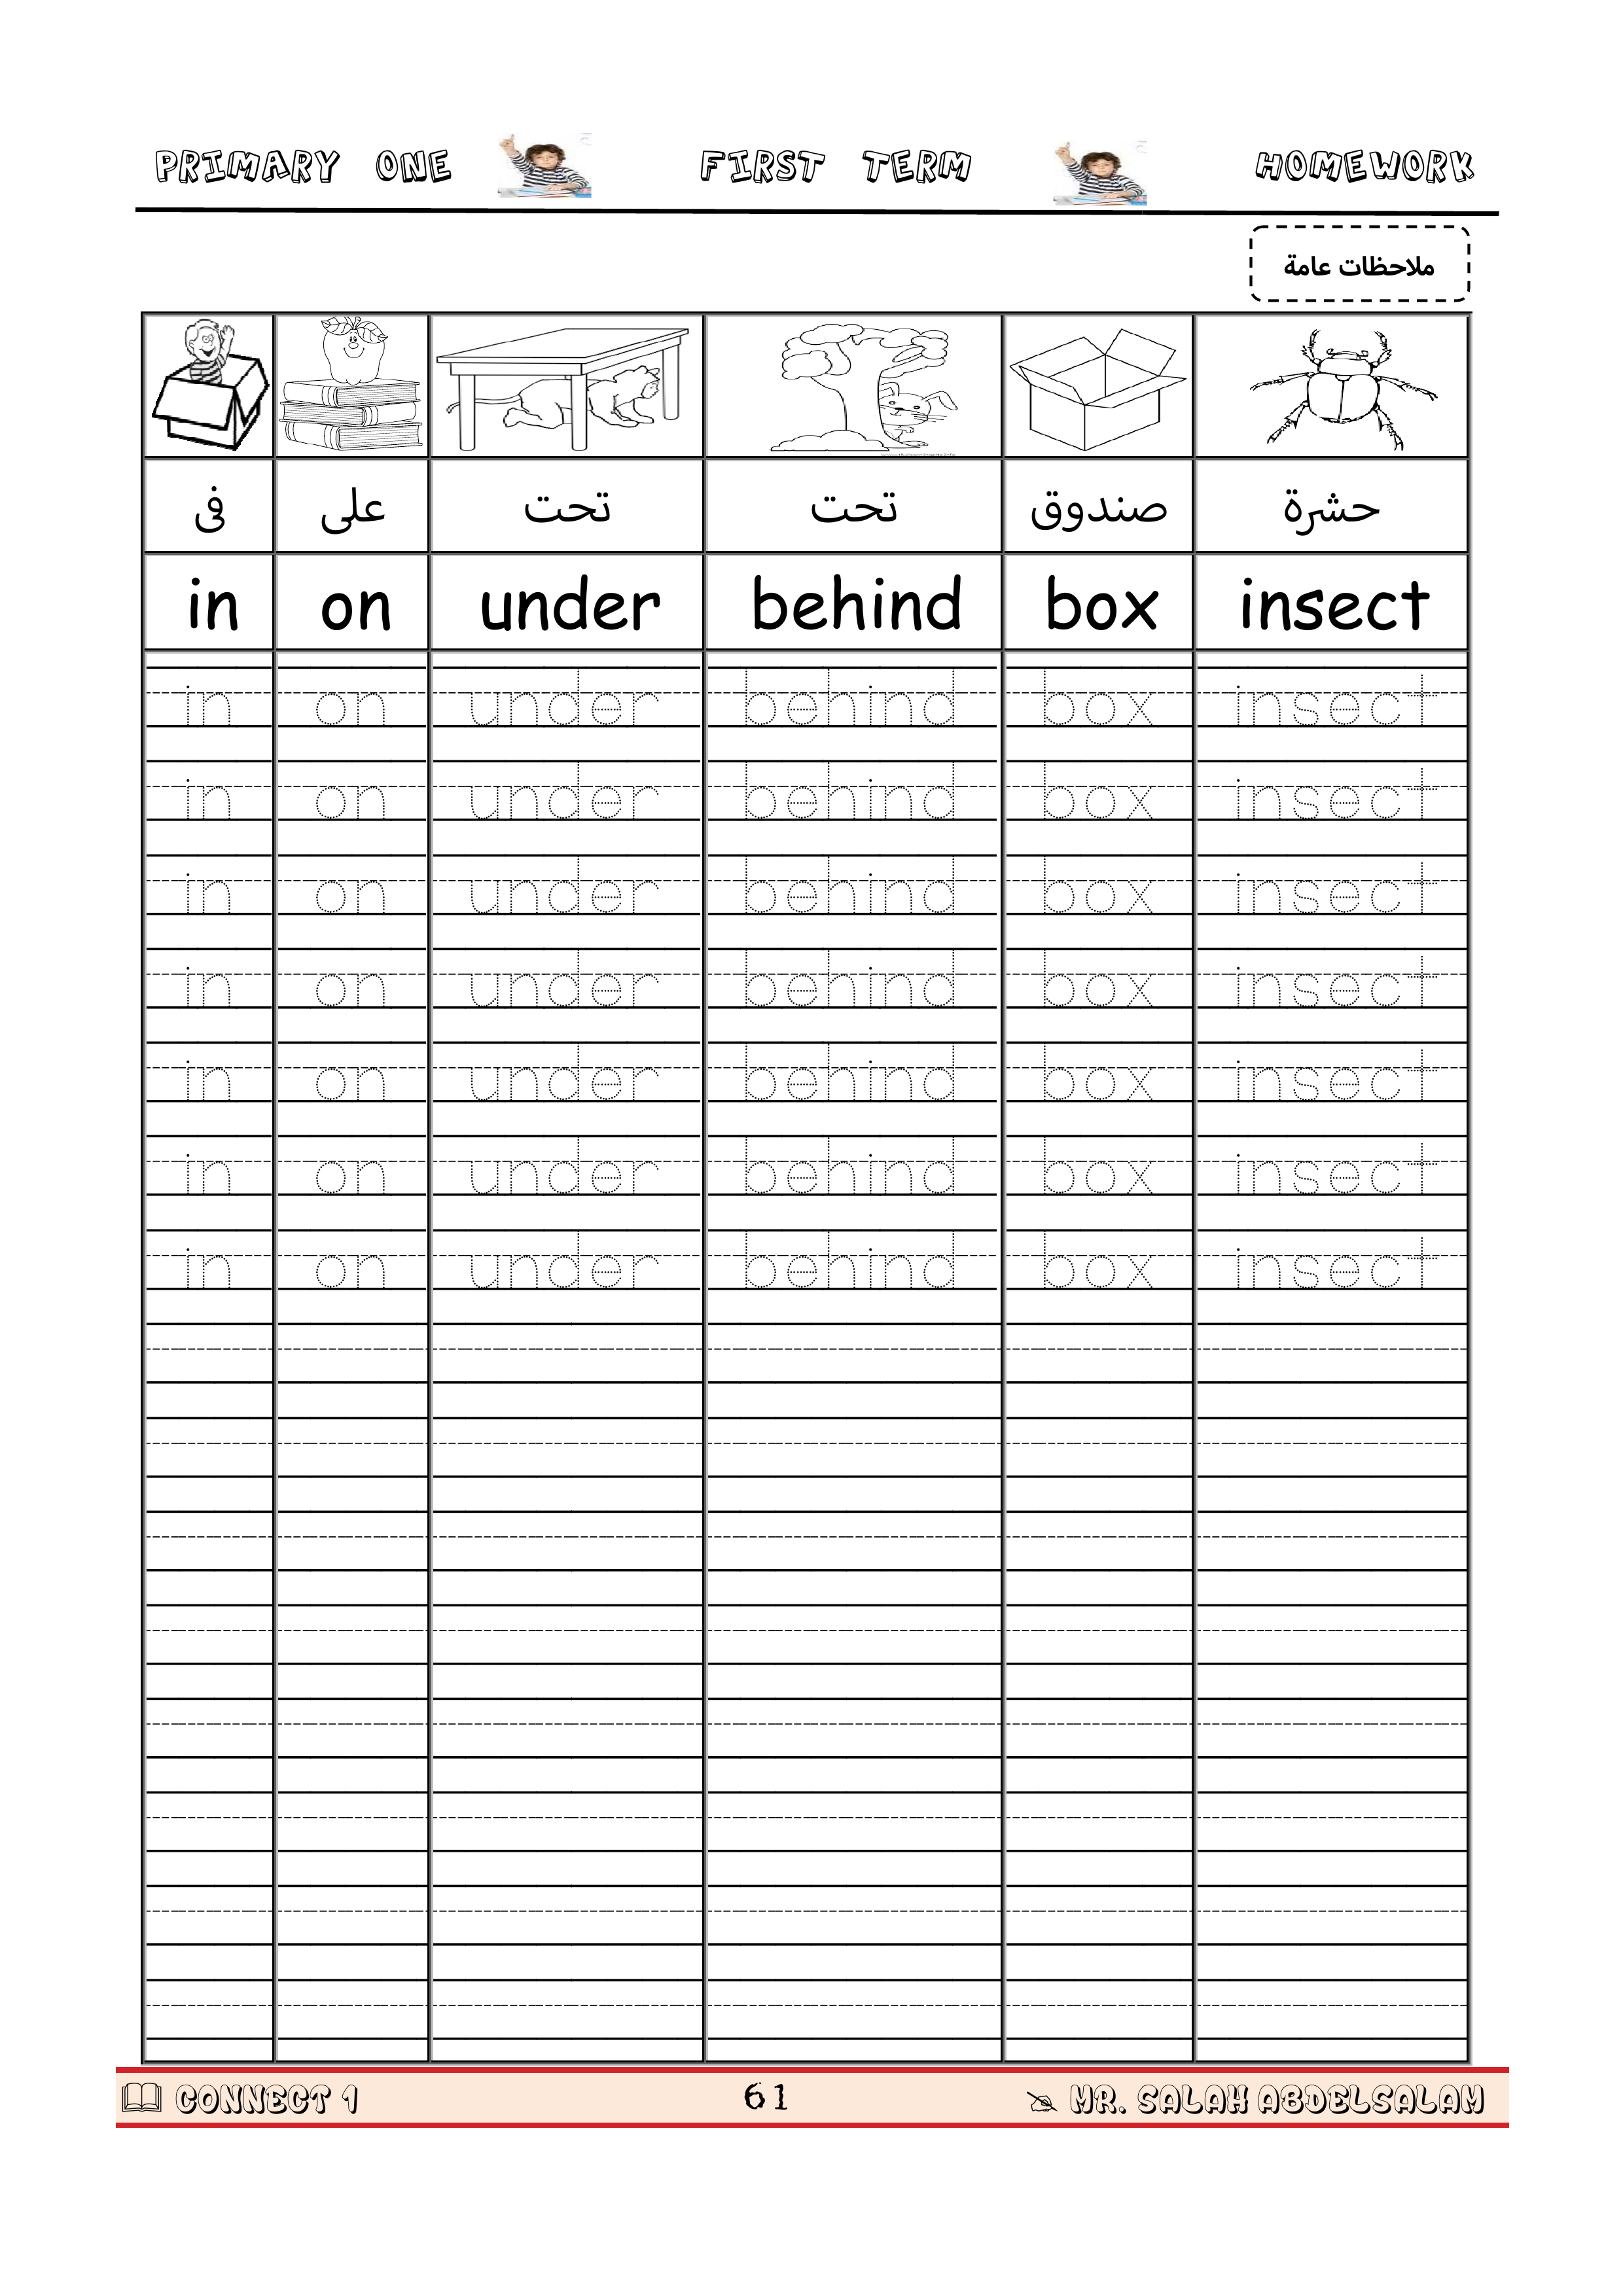 PRIMARY ONE FIRST TERM HOMEWORK
ملاحظات عامة
فى على تحت تحت صندوق حشرة
in on under behind box insect
in on under behind box insect
in on under behind box insect
in on under behind box insect
in on under behind box insect
in on under behind box insect
in on under behind box insect
in on under behind box insect
CONNECT 1 61 MR. SALAH ABDELSALAM